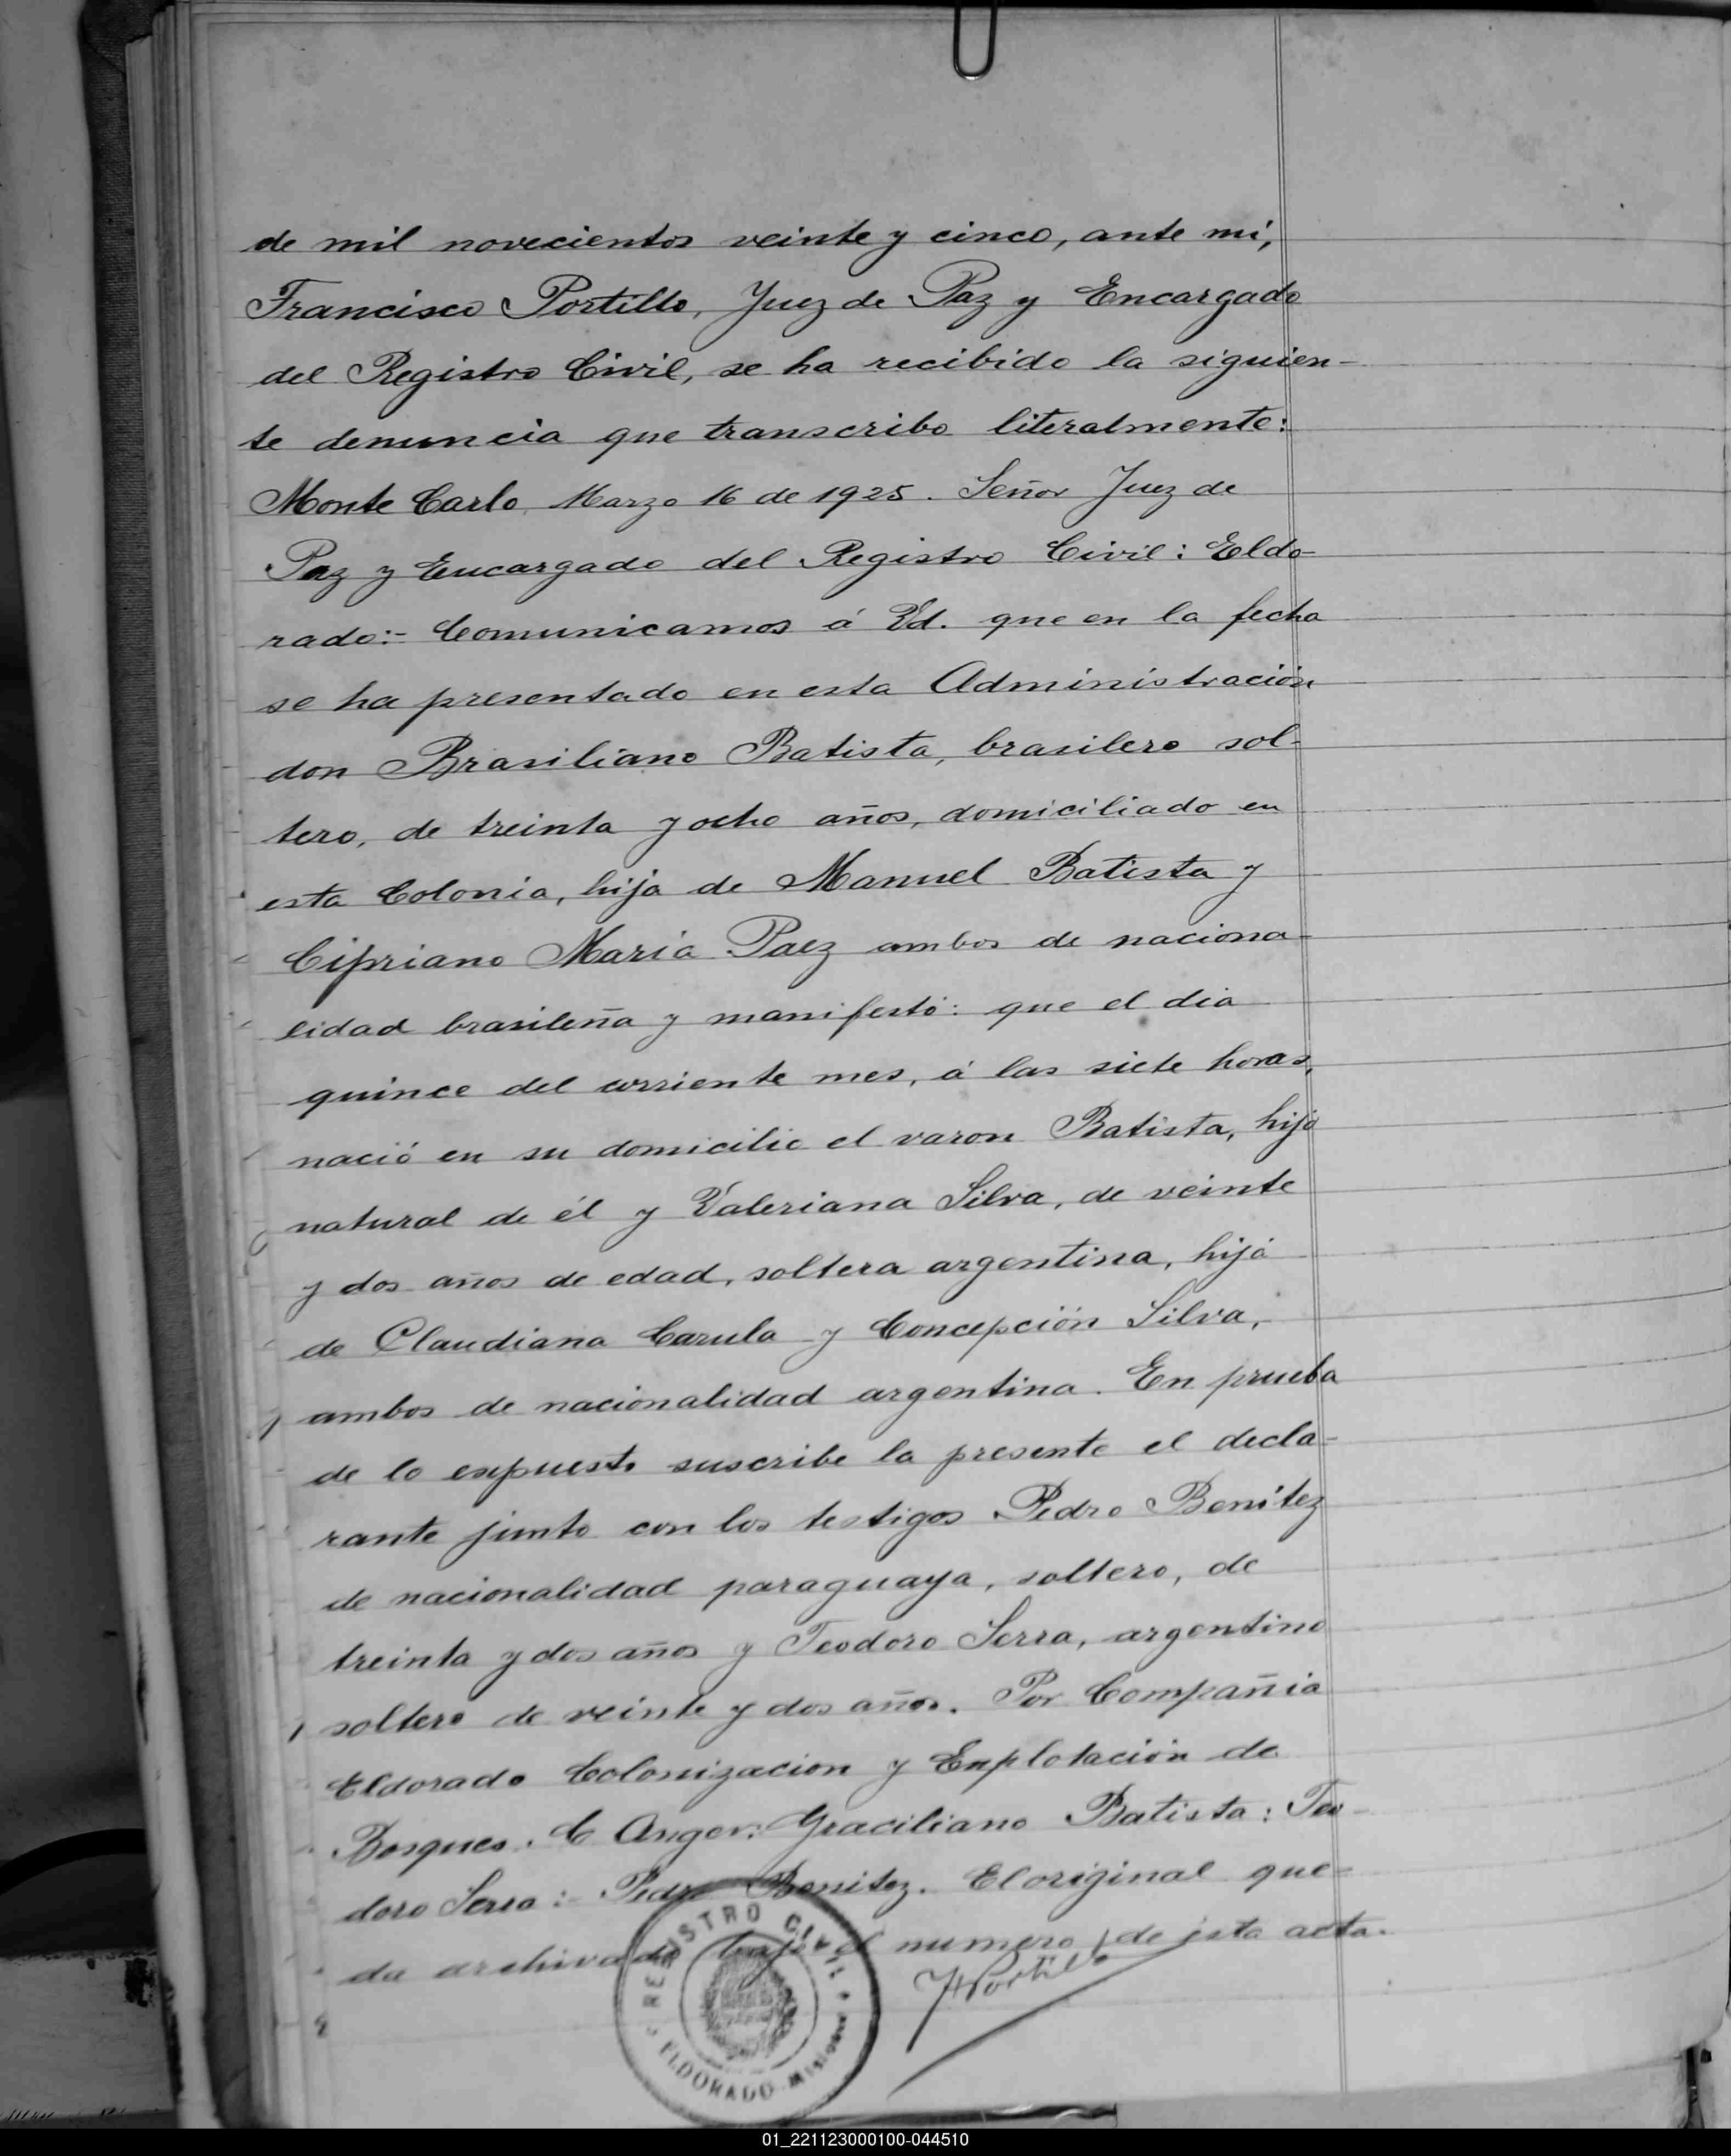 de mil novecientos veinte y cinco, ante mí,
Francisco Portillo, Juez de Paz y Encargado
del Registro Civil, se ha recibido la siguien-
te denuncia que transcribo literalmente:
Monte Carlo, Marzo 16 de 1925. Señor Juez de
Paz y Encargado del Registro Civil: Eldo-
rado:- Comunicamos á Vd. que en la fecha
se ha presentado en esta Administración
don Brasiliano Batista, brasilero sol-
tero, de treinta y ocho años, domiciliado en
esta Colonia, hijo de Manuel Batista y
Cipriano María Paez ambos de naciona-
lidad brasileña y manifestó: que el dia
quince del corriente mes, á las siete horas,
nació en su domicilio el varon Batista, hijo
natural de él y Valeriana Silva, de veinte
y dos años de edad, soltera argentina, hija
de Claudiana Carula y Concepción Silva,
ambos de nacionalidad argentina. En prueba
de lo expuesto suscribe la presente el decla-
rante junto con los testigos Pedro Benítez
de nacionalidad paraguaya, soltero, de
treinta y dos años y Teodoro Serra, argentino
soltero de veinte y dos años. Por Compañia
Eldorado Colonizacion y Explotación de
Bosques. C Anger: Graciliano Batista: Teo-
doro Serra:- Pedro Benitez. El original que-
da archivado bajo el numero de ésta acta.
FPortillo
REGISTRO CIVIL
ELDORADO Misiones
01_221123000100-044510